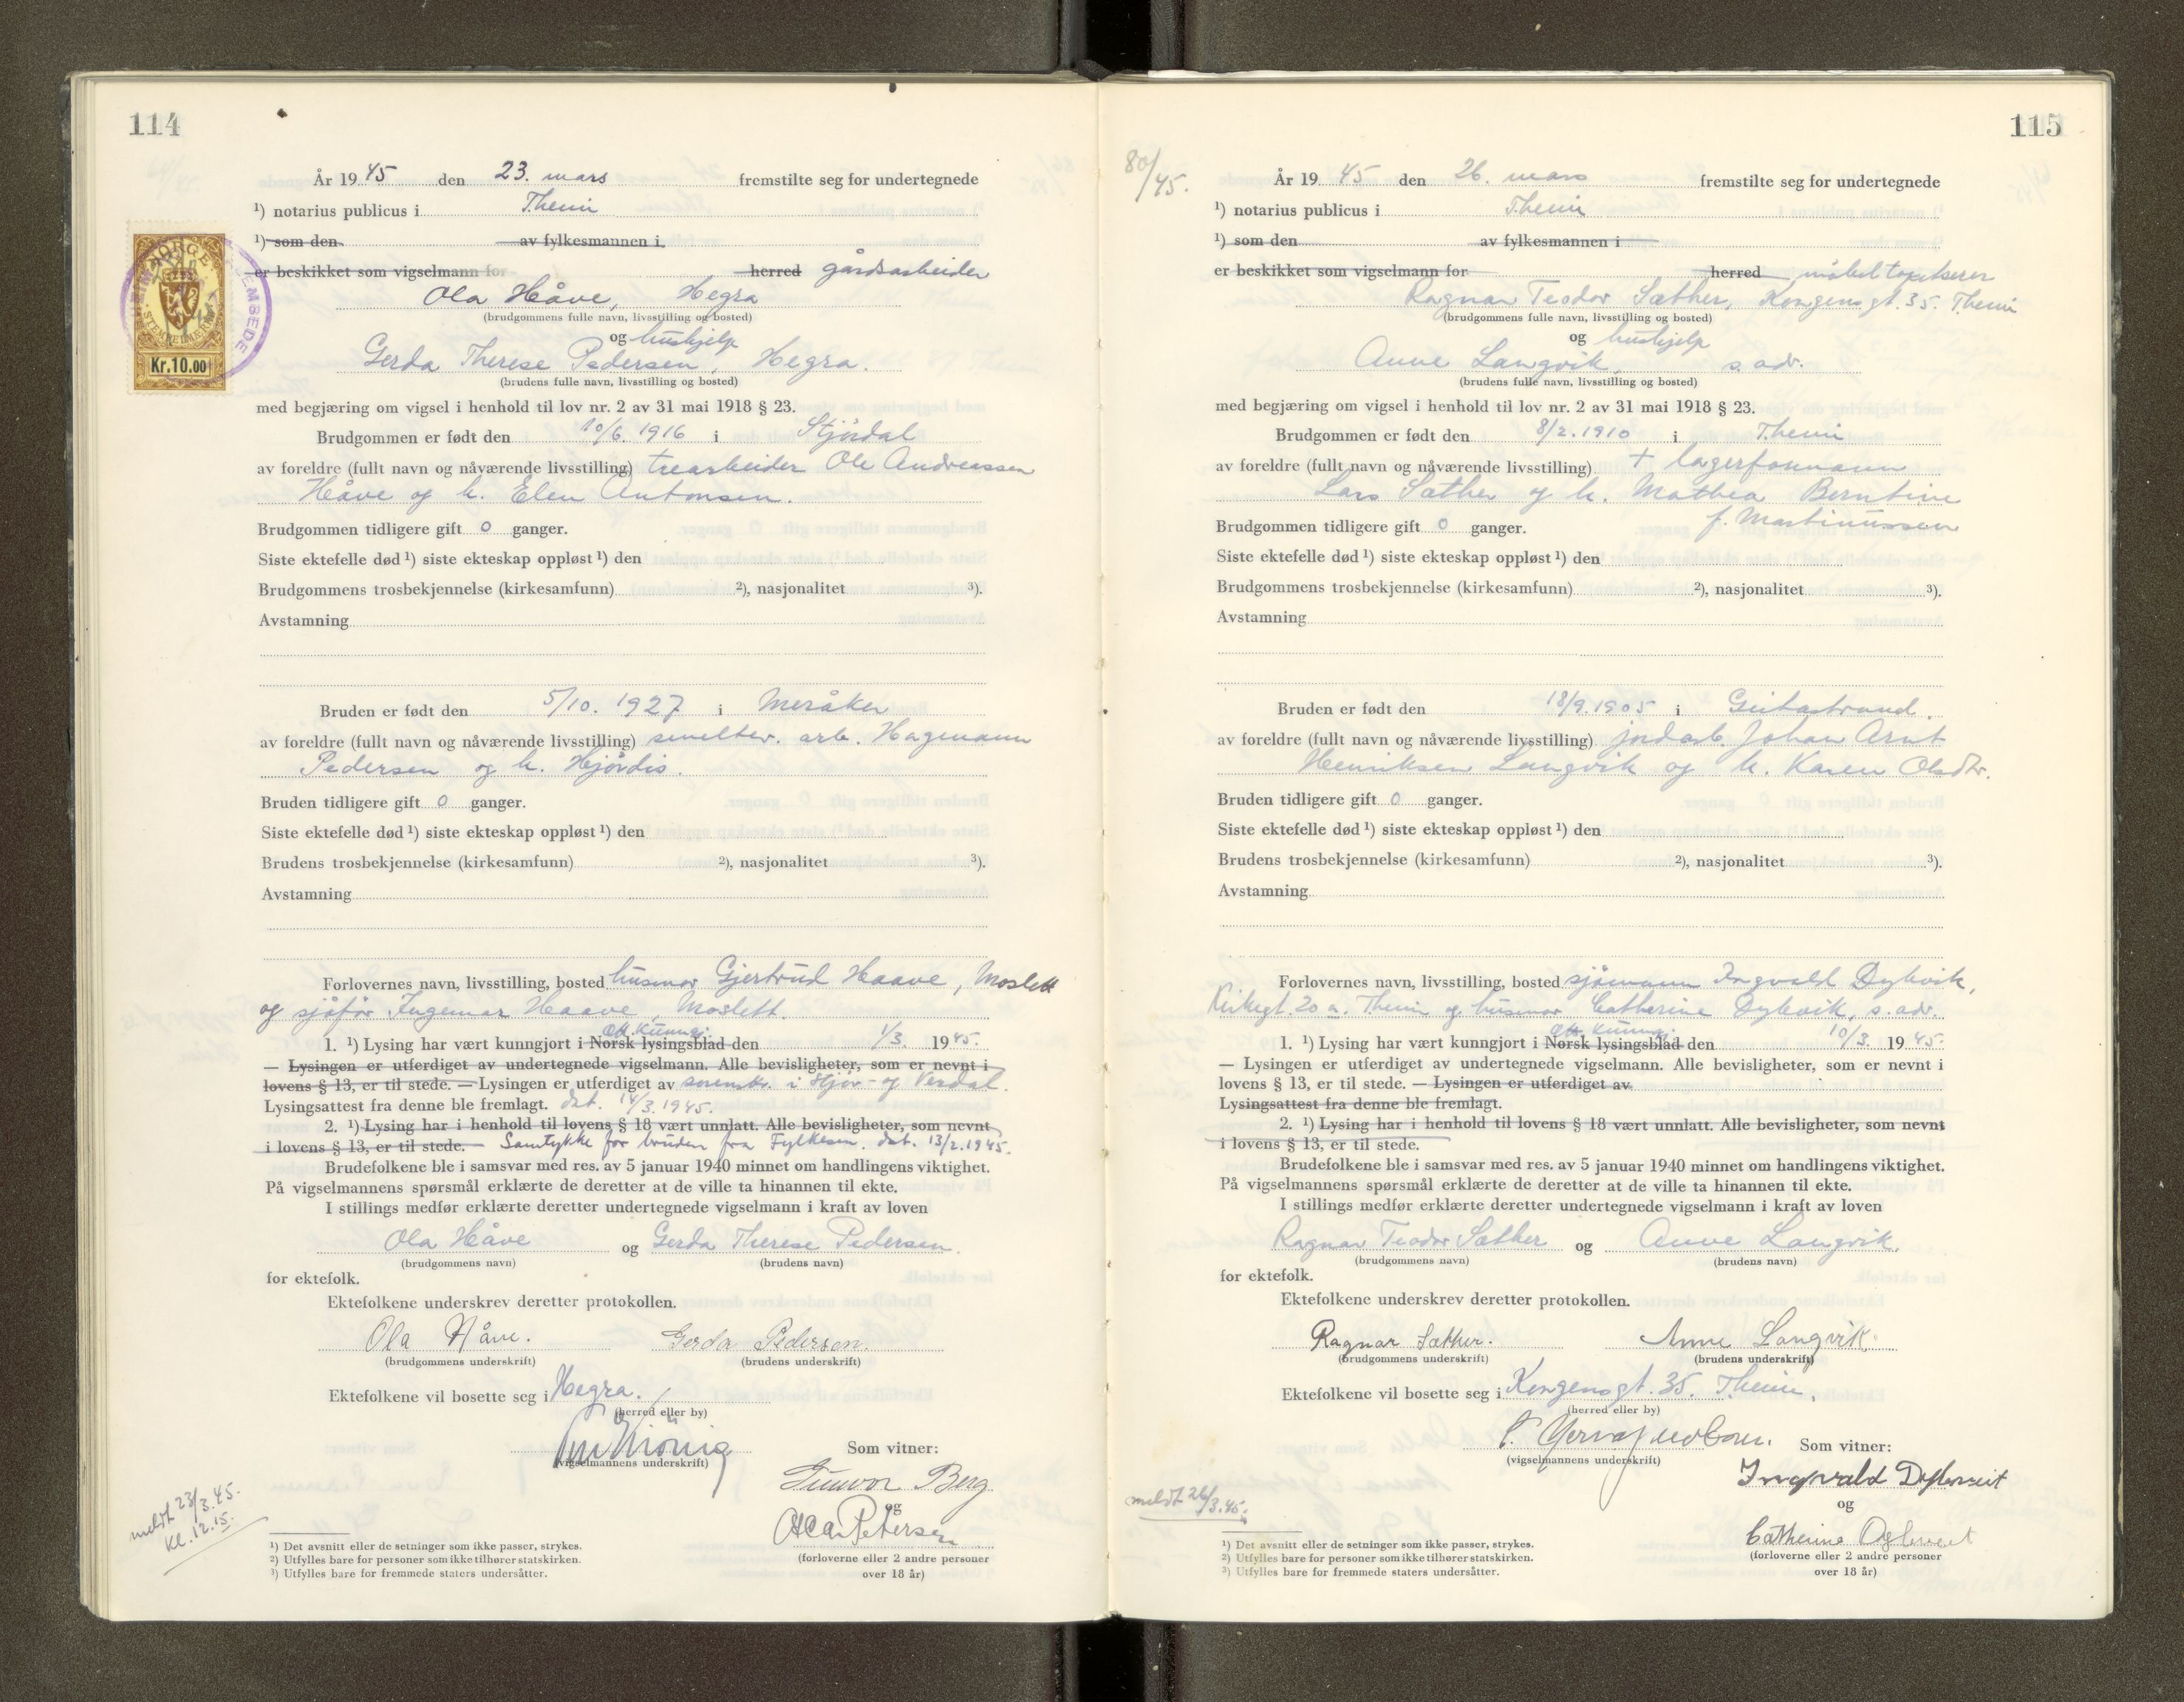 114
År 1945 den 23. mars fremstilte seg for undertegnede
¹) notarius publicus i T.heim
¹) som den av fylkesmannen i
er beskikket som vigselmann for herred gårdsarbeider
Ola Håve, Hegra
(brudgommens fulle navn, livsstilling og bosted)
og hushjelp
Gerda Therese Pedersen, Hegra.
(brudens fulle navn, livsstilling og bosted)
NORGE
STEMPELMERKE
Kr.10.00
med begjæring om vigsel i henhold til lov nr. 2 av 31 mai 1918 § 23.
Brudgommen er født den 10/6. 1916 i Stjördal
av foreldre (fullt navn og nåværende livsstilling) trearbeider Ole Andreassen
Håve og h. Elen Antonsen.
Brudgommen tidligere gift 0 ganger.
Siste ektefelle død ¹) siste ekteskap oppløst ¹) den
Brudgommens trosbekjennelse (kirkesamfunn) ²), nasjonalitet ³).
Avstamning
Bruden er født den 5/10. 1927 i Meråker
av foreldre (fullt navn og nåværende livsstilling) smeltev. arb. Hagmann
Pedersen og h. Hjördis.
Bruden tidligere gift 0 ganger.
Siste ektefelle død ¹) siste ekteskap oppløst ¹) den
Brudens trosbekjennelse (kirkesamfunn) ²), nasjonalitet ³).
Avstamning
Forlovernes navn, livsstilling, bosted husmor Gjertrud Haave, Moslett
og sjåför Ingemar Haave, Moslett.
Off. kunngj.
1. ¹) Lysing har vært kunngjort i Norsk lysingsblad den 1/3. 1945.
— Lysingen er utferdiget av undertegnede vigselmann. Alle bevisligheter, som er nevnt i
lovens § 13, er til stede. — Lysingen er utferdiget av sorenskr. i Stjör- og Verdal.
Lysingsattest fra denne ble fremlagt. dat. 14/3. 1945.
2. ¹) Lysing har i henhold til lovens § 18 vært unnlatt. Alle bevisligheter, som nevnt
i lovens § 13, er til stede. — Samtykke for bruden fra Fylkesm. dat. 13/2. 1945.
Brudefolkene ble i samsvar med res. av 5 januar 1940 minnet om handlingens viktighet.
På vigselmannens spørsmål erklærte de deretter at de ville ta hinannen til ekte.
I stillings medfør erklærte deretter undertegnede vigselmann i kraft av loven
Ola Håve og Gerda Therese Pedersen.
(brudgommens navn) (brudens navn)
for ektefolk.
Ektefolkene underskrev deretter protokollen.
Ola Håve. Gerda Pedersen.
(brudgommens underskrift) (brudens underskrift)
Ektefolkene vil bosette seg i Hegra.
(herred eller by)
(vigselmannens underskrift)
Som vitner:
Gunvor Berg
og
Petersen
(forloverne eller 2 andre personer
over 18 år)
meldt 23/3.45.
kl. 12.15.
¹) Det avsnitt eller de setninger som ikke passer, strykes.
²) Utfylles bare for personer som ikke tilhører statskirken.
³) Utfylles bare for fremmede staters undersåtter.
115
80/45.
År 1945 den 26. mars fremstilte seg for undertegnede
¹) notarius publicus i T.heim
¹) som den av fylkesmannen i
er beskikket som vigselmann for herred möbeltapetserer
Ragnar Teodor Sæther, Kongensgt. 35. T.heim
(brudgommens fulle navn, livsstilling og bosted)
og hushjelp
Anne Langvik, s. adr.
(brudens fulle navn, livsstilling og bosted)
med begjæring om vigsel i henhold til lov nr. 2 av 31 mai 1918 § 23.
Brudgommen er født den 8/2. 1910 i T.heim
av foreldre (fullt navn og nåværende livsstilling) + lagerformann
Lars Sæther og h. Mathea Berntine
f. Martinussen
Brudgommen tidligere gift 0 ganger.
Siste ektefelle død ¹) siste ekteskap oppløst ¹) den
Brudgommens trosbekjennelse (kirkesamfunn) ²), nasjonalitet ³).
Avstamning
Bruden er født den 18/9. 1905 i Geitastrand.
av foreldre (fullt navn og nåværende livsstilling) jordarb. Johan Arnt
Henriksen Langvik og h. Karen Olsdtr.
Bruden tidligere gift 0 ganger.
Siste ektefelle død ¹) siste ekteskap oppløst ¹) den
Brudens trosbekjennelse (kirkesamfunn) ²), nasjonalitet ³).
Avstamning
Forlovernes navn, livsstilling, bosted sjömann Ingvald Dybvik,
Kirkegt. 20 a. T.heim og husmor Catherine Dybvik, s. adr.
Off. kunngj.
1. ¹) Lysing har vært kunngjort i Norsk lysingsblad den 10/3. 1945.
— Lysingen er utferdiget av undertegnede vigselmann. Alle bevisligheter, som er nevnt i
lovens § 13, er til stede. — Lysingen er utferdiget av
Lysingsattest fra denne ble fremlagt.
2. ¹) Lysing har i henhold til lovens § 18 vært unnlatt. Alle bevisligheter, som nevnt
i lovens § 13, er til stede.
Brudefolkene ble i samsvar med res. av 5 januar 1940 minnet om handlingens viktighet.
På vigselmannens spørsmål erklærte de deretter at de ville ta hinannen til ekte.
I stillings medfør erklærte deretter undertegnede vigselmann i kraft av loven
Ragnar Teodor Sæther og Anne Langvik.
(brudgommens navn) (brudens navn)
for ektefolk.
Ektefolkene underskrev deretter protokollen.
Ragnar Sæther. Anne Langvik.
(brudgommens underskrift) (brudens underskrift)
Ektefolkene vil bosette seg i Kongensgt. 35. T.heim.
(herred eller by)
(vigselmannens underskrift)
Som vitner:
Ingvald
og
Catherine
(forloverne eller 2 andre personer
over 18 år)
meldt 26/3.45.
¹) Det avsnitt eller de setninger som ikke passer, strykes.
²) Utfylles bare for personer som ikke tilhører statskirken.
³) Utfylles bare for fremmede staters undersåtter.